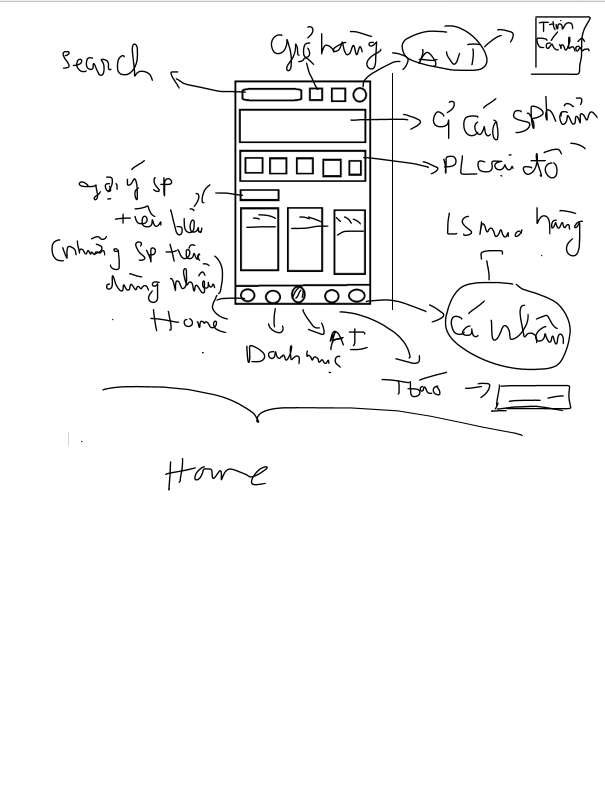 Giỏ hàng
AVT
Ttin
Cá nhân
Search
Q cáo sphẩm
PLoại đồ
gợi ý sp
tiêu biểu
(những sp tiêu
dùng nhiều
LS mua hàng
Home
Danh mục
AI
Cá nhân
Tbáo
Home